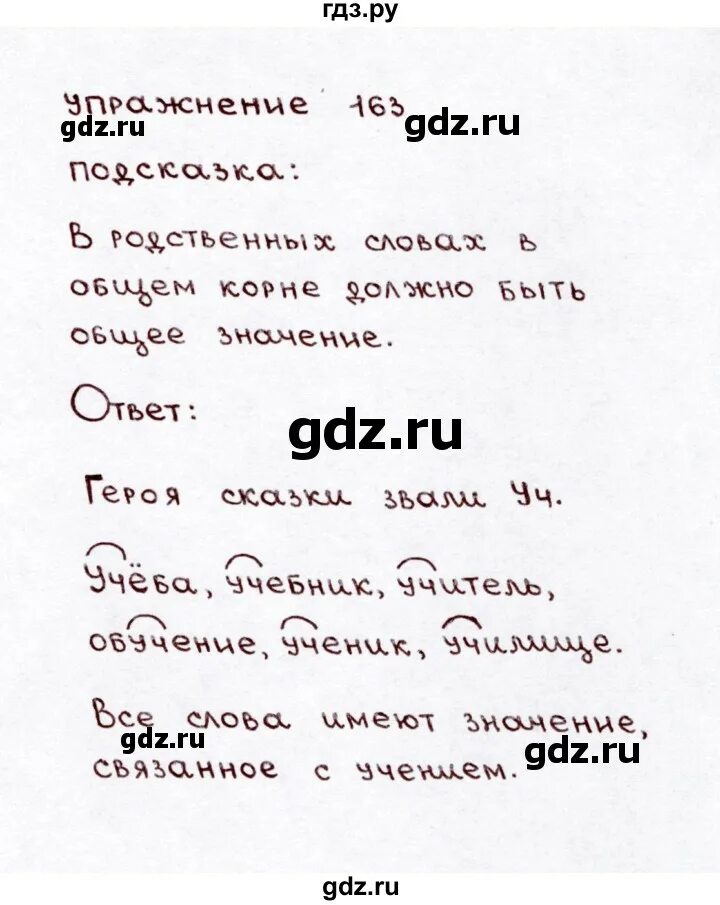 гдз.ру
упражнение 163
gdz.ru gdz.ru
подсказка:
В родственных словах в
общем корне должно быть
общее значение.
Ответ:
gdz.ru
Героя сказки звали Уч.
Учёба, учебник, учитель,
обучение, ученик, училище.
Все слова имеют значение,
gdz.ru gdz.ru
связанное с учением.
gdz.ru